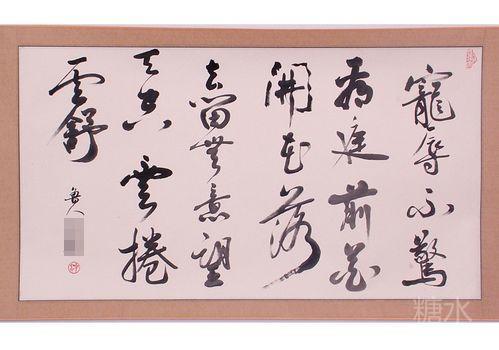 寵辱不驚
看庭前花
開花落
去留無意望
天空雲捲
云舒
糖水